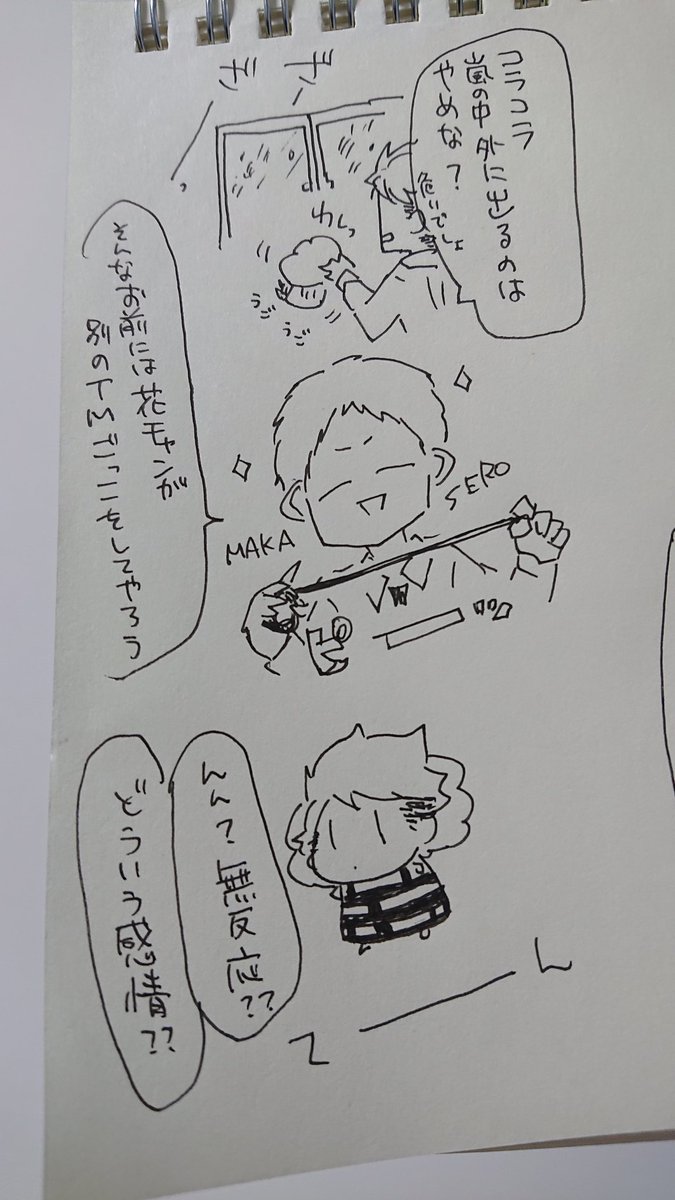 コラコラ
嵐の中外に出るのは
やめな?
危いでしょ
わしっ
うご
うご
そんなお前には花チャンが
別のTMごっこをしてやろう
MAKA
SERO
んん?無反応??
どういう感情??